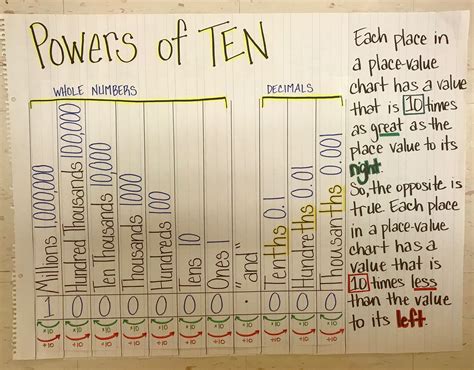 Powers of TEN
WHOLE NUMBERS
DECIMALS
Millions 1,000,000
Hundred Thousands 100,000
Ten Thousands 10,000
Thousands 1000
Hundreds 100
Tens 10
Ones 1
"and"
Tenths 0.1
Hundreths 0.01
Thousanths 0.001
1 0 0 0 0 0 0 . 0 0 0
×10 ×10 ×10 ×10 ×10 ×10 ×10 ×10 ×10 ×10 ×10
÷10 ÷10 ÷10 ÷10 ÷10 ÷10 ÷10 ÷10 ÷10 ÷10 ÷10
Each place in
a place-value
chart has a value
that is 10 times
as great as the
place value to its
right.
So, the opposite is
true. Each place
in a place-value
chart has a
value that is
10 times less
than the value
to its left.